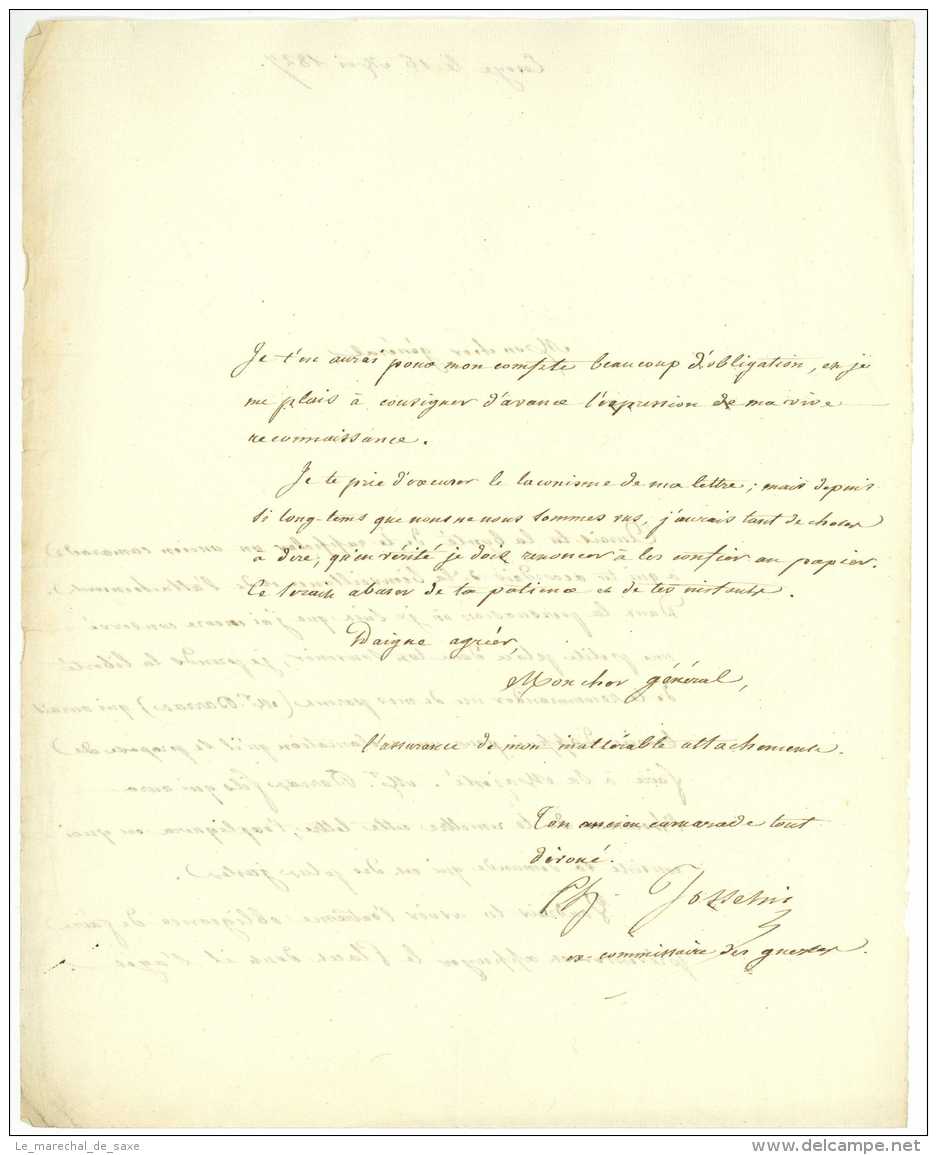 Je t'en aurai pour mon compte beaucoup d'obligation, et je
me plais à consigner d'avance l'expression de ma vive
reconnaissance.
Je te prie d'excuser le laconisme de ma lettre ; mais depuis
si long-tems que nous ne nous sommes vus, j'aurais tant de choses
à dire, qu'en vérité je dois renoncer à les confier au papier.
Ce serait abuser de ta patience et de tes instants.
Daigne agréer,
Mon cher général,
l'assurance de mon inaltérable attachement.
Ton ancien camarade tout
dévoué.
Josselin
ex commissaire des guerres.
Le_marechal_de_saxe
www.delcampe.net